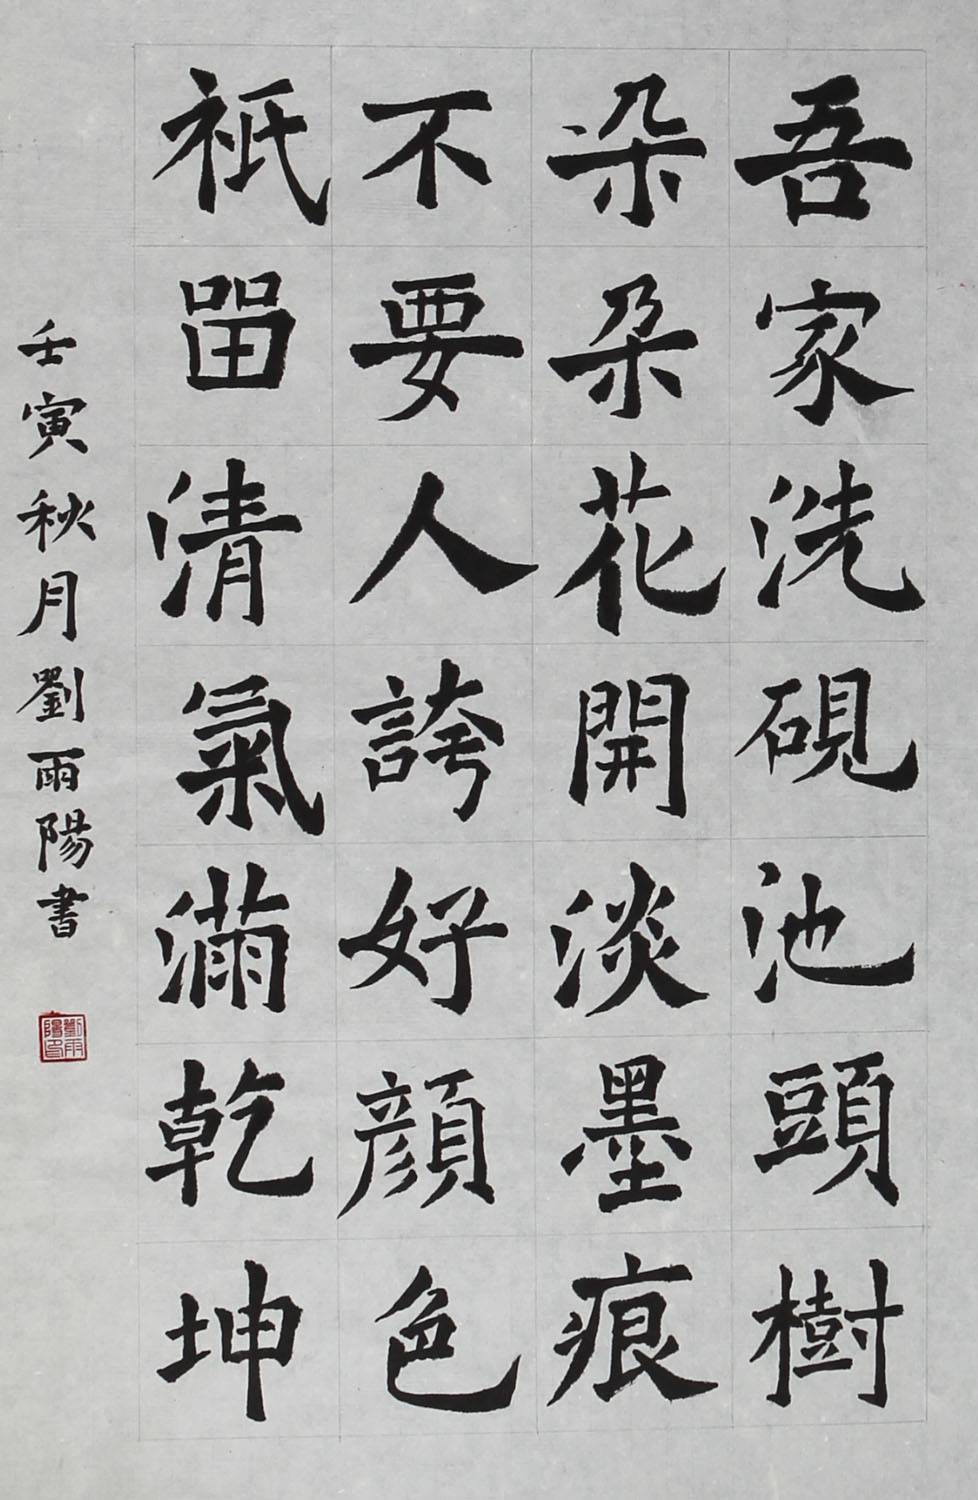 吾家洗硯池頭樹
朵朵花開淡墨痕
不要人誇好顏色
祇留清氣滿乾坤
壬寅秋月劉雨陽書
劉雨陽印